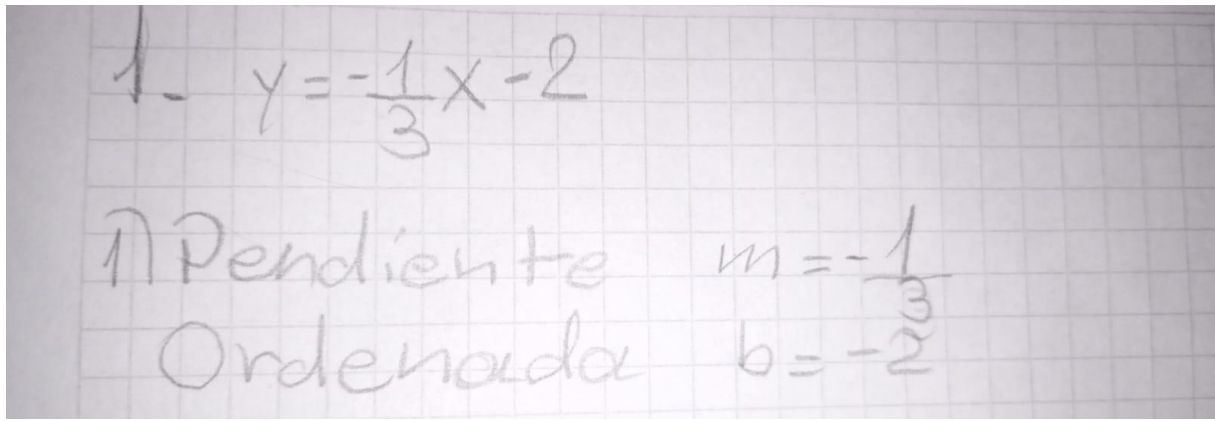 1.- y = -1/3 x - 2
1) Pendiente m = -1/3
Ordenada b = -2